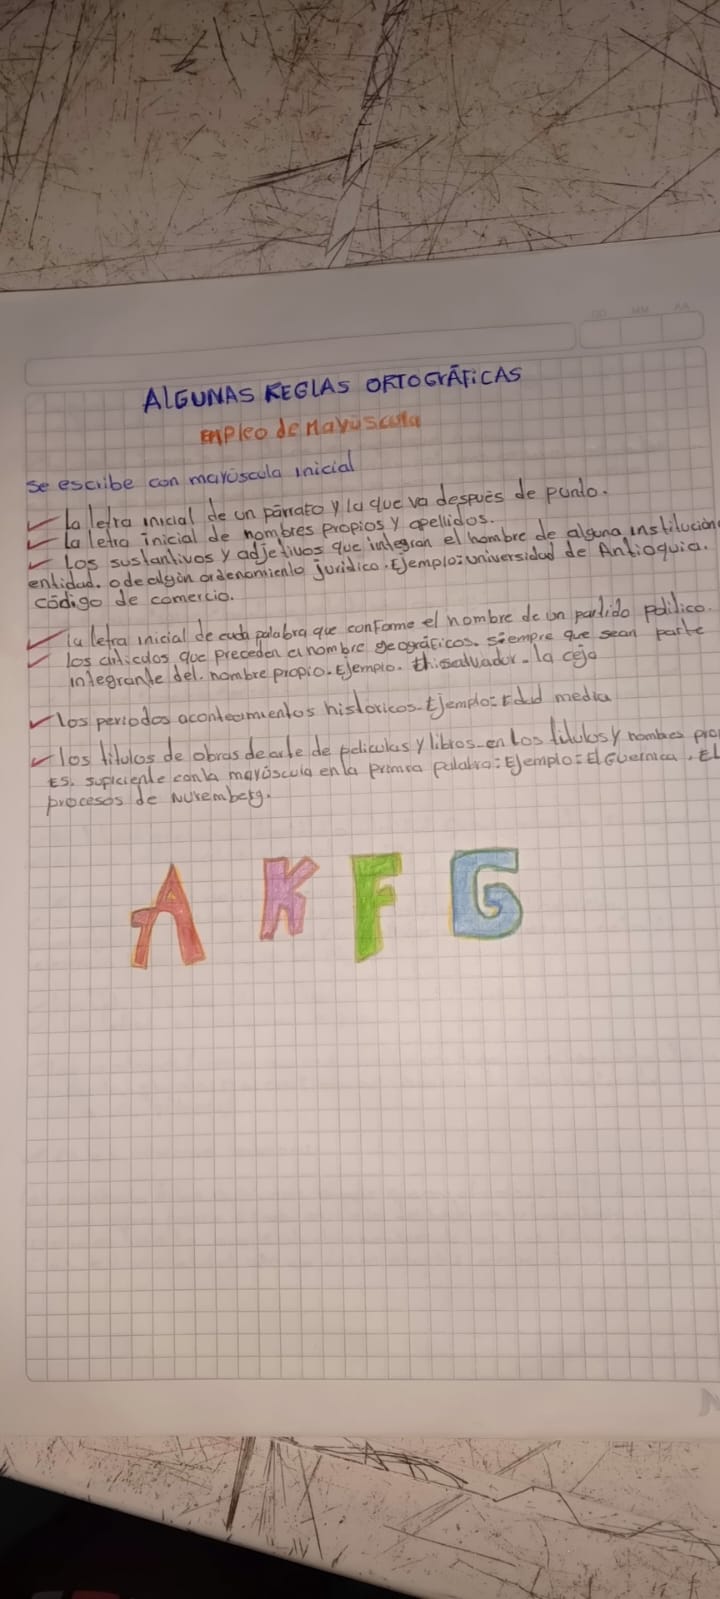 DD MM AA
ALGUNAS REGLAS ORTOGRÁFICAS
EMPleo de Mayuscula
se escribe con mayúscula inicial
La letra inicial de un párrafo y la que va después de punto.
La letra inicial de nombres propios y apellidos.
Los sustantivos y adjetivos que integran el nombre de alguna institución
entidad. o de algún ordenamiento jurídico. Ejemplo: universidad de Antioquia.
código de comercio.
la letra inicial de cada palabra que conforme el nombre de un partido político.
los artículos que preceden a nombre geográficos. siempre que sean parte
integrante del. nombre propio. Ejemplo. la ceja
los periodos acontecimientos historicos. Ejemplo: Edad media
los titulos de obras de arte de peliculas y libros en los titulos y nombres pro
Es. suficiente con la mayúscula en la primera palabra: Ejemplo: El Guernica. El
procesos de Nuremberg.
A K F G